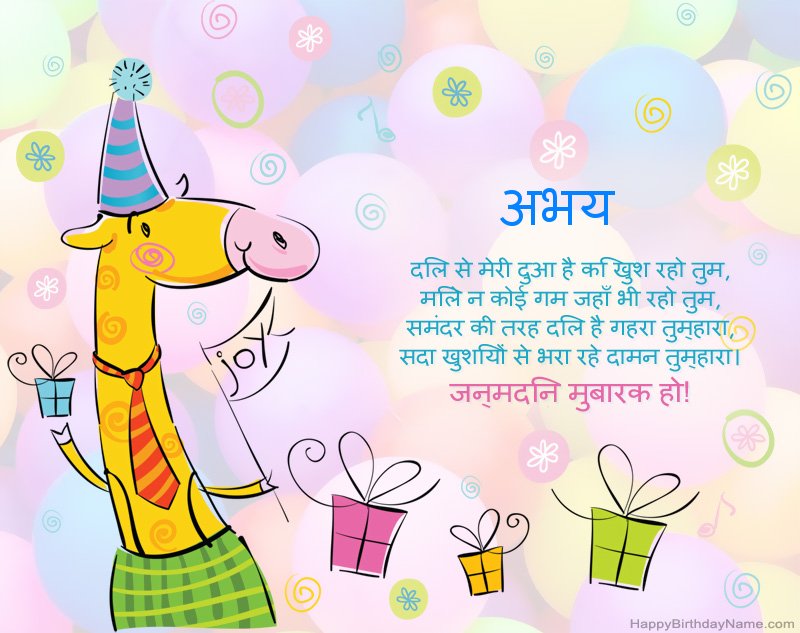 अभय
दिल से मेरी दुआ है कि खुश रहो तुम,
मिले न कोई गम जहाँ भी रहो तुम,
समंदर की तरह दिल है गहरा तुम्हारा,
सदा खुशियों से भरा रहे दामन तुम्हारा।
जन्मदिन मुबारक हो!
joy
HappyBirthdayName.com